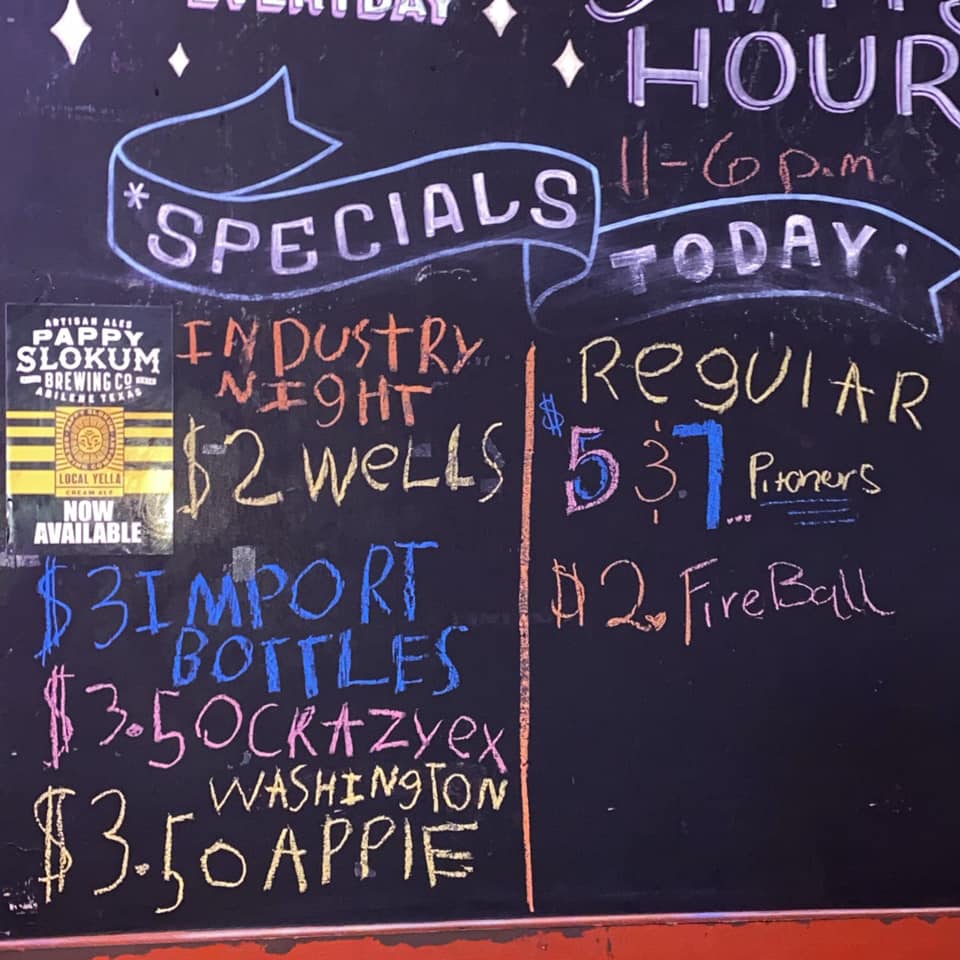 EVERYDAY
HOUR
11-6 p.m.
*SPECIALS
TODAY.
ARTISAN ALES
PAPPY
SLOKUM
BREWING CO
ABILENE TEXAS
LOCAL YELLA
CREAM ALE
NOW
AVAILABLE
INDUSTRY
NIGHT
$2 WELLS
$3 IMPORT
BOTTLES
$3.50 CRAZYEX
WASHINGTON
$3.50 APPIE
REgUlAR
$5 & 7... Pitchers
$2. FireBall